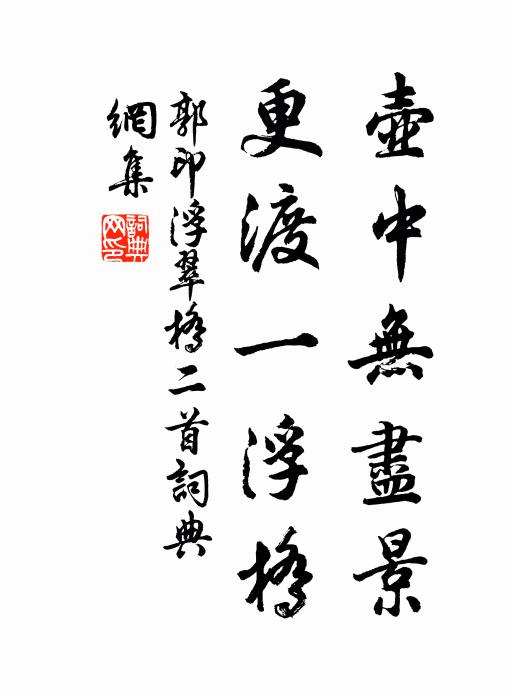 壺中無盡景
更渡一浮橋
郭印浮翠橋二首詞典
網集
詞典網印